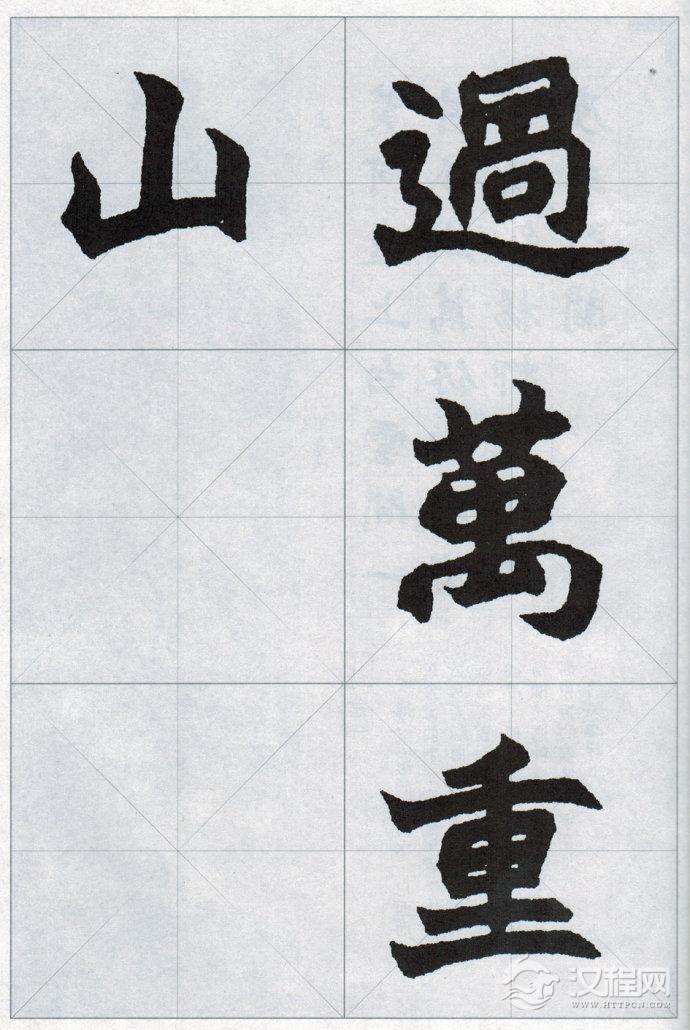 過萬重
山
汉程网
WWW.HTTPCN.COM